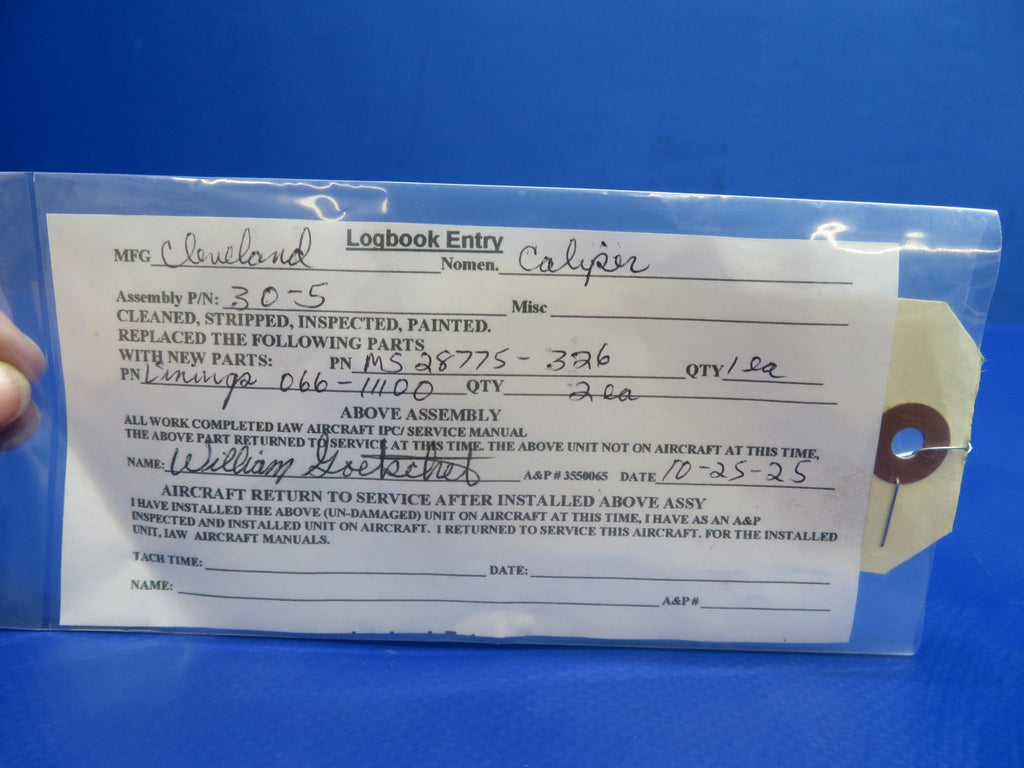 Logbook Entry
MFG Cleveland Nomen. Caliper
Assembly P/N: 30-5 Misc
CLEANED, STRIPPED, INSPECTED, PAINTED.
REPLACED THE FOLLOWING PARTS
WITH NEW PARTS: PN MS 28775-326 QTY 1 ea
PN Linings 066-11100 QTY 2 ea
ABOVE ASSEMBLY
ALL WORK COMPLETED IAW AIRCRAFT IPC/ SERVICE MANUAL
THE ABOVE PART RETURNED TO SERVICE AT THIS TIME. THE ABOVE UNIT NOT ON AIRCRAFT AT THIS TIME,
NAME: William A&P # 3550065 DATE 10-25-25
AIRCRAFT RETURN TO SERVICE AFTER INSTALLED ABOVE ASSY
I HAVE INSTALLED THE ABOVE (UN-DAMAGED) UNIT ON AIRCRAFT AT THIS TIME, I HAVE AS AN A&P
INSPECTED AND INSTALLED UNIT ON AIRCRAFT. I RETURNED TO SERVICE THIS AIRCRAFT. FOR THE INSTALLED
UNIT, IAW AIRCRAFT MANUALS.
TACH TIME: DATE:
NAME: A&P #